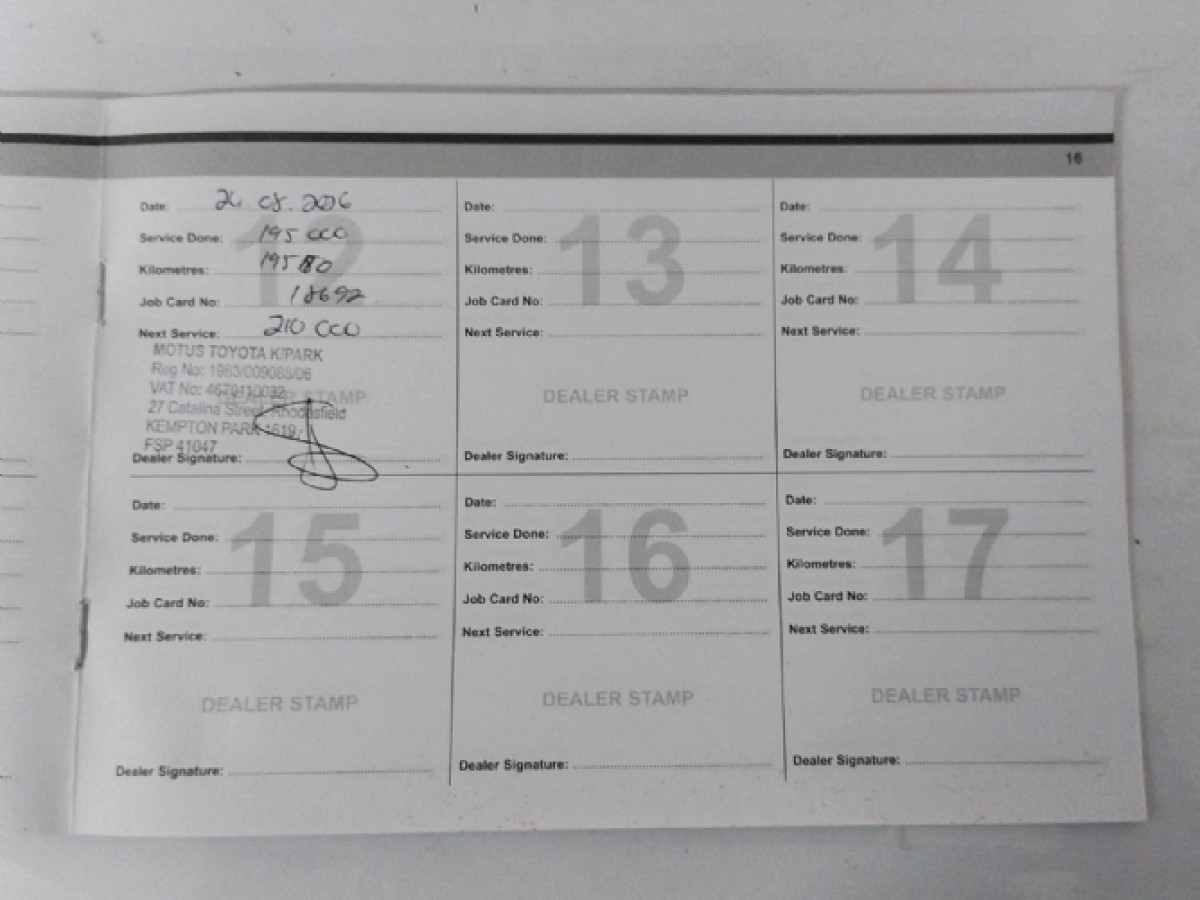 16
Date: 26.08.2026
12
Service Done: 195 000
Kilometres: 195180
Job Card No: 18692
Next Service: 210 000
MOTUS TOYOTA K/PARK
Reg No: 1983/009088/06
VAT No: 4679110032
DEALER STAMP
27 Catalina Street, Rhodesfield
KEMPTON PARK 1619
FSP 41047
Dealer Signature:
Date:
13
Service Done:
Kilometres:
Job Card No:
Next Service:
DEALER STAMP
Dealer Signature:
Date:
14
Service Done:
Kilometres:
Job Card No:
Next Service:
DEALER STAMP
Dealer Signature:
Date:
15
Service Done:
Kilometres:
Job Card No:
Next Service:
DEALER STAMP
Dealer Signature:
Date:
16
Service Done:
Kilometres:
Job Card No:
Next Service:
DEALER STAMP
Dealer Signature:
Date:
17
Service Done:
Kilometres:
Job Card No:
Next Service:
DEALER STAMP
Dealer Signature: